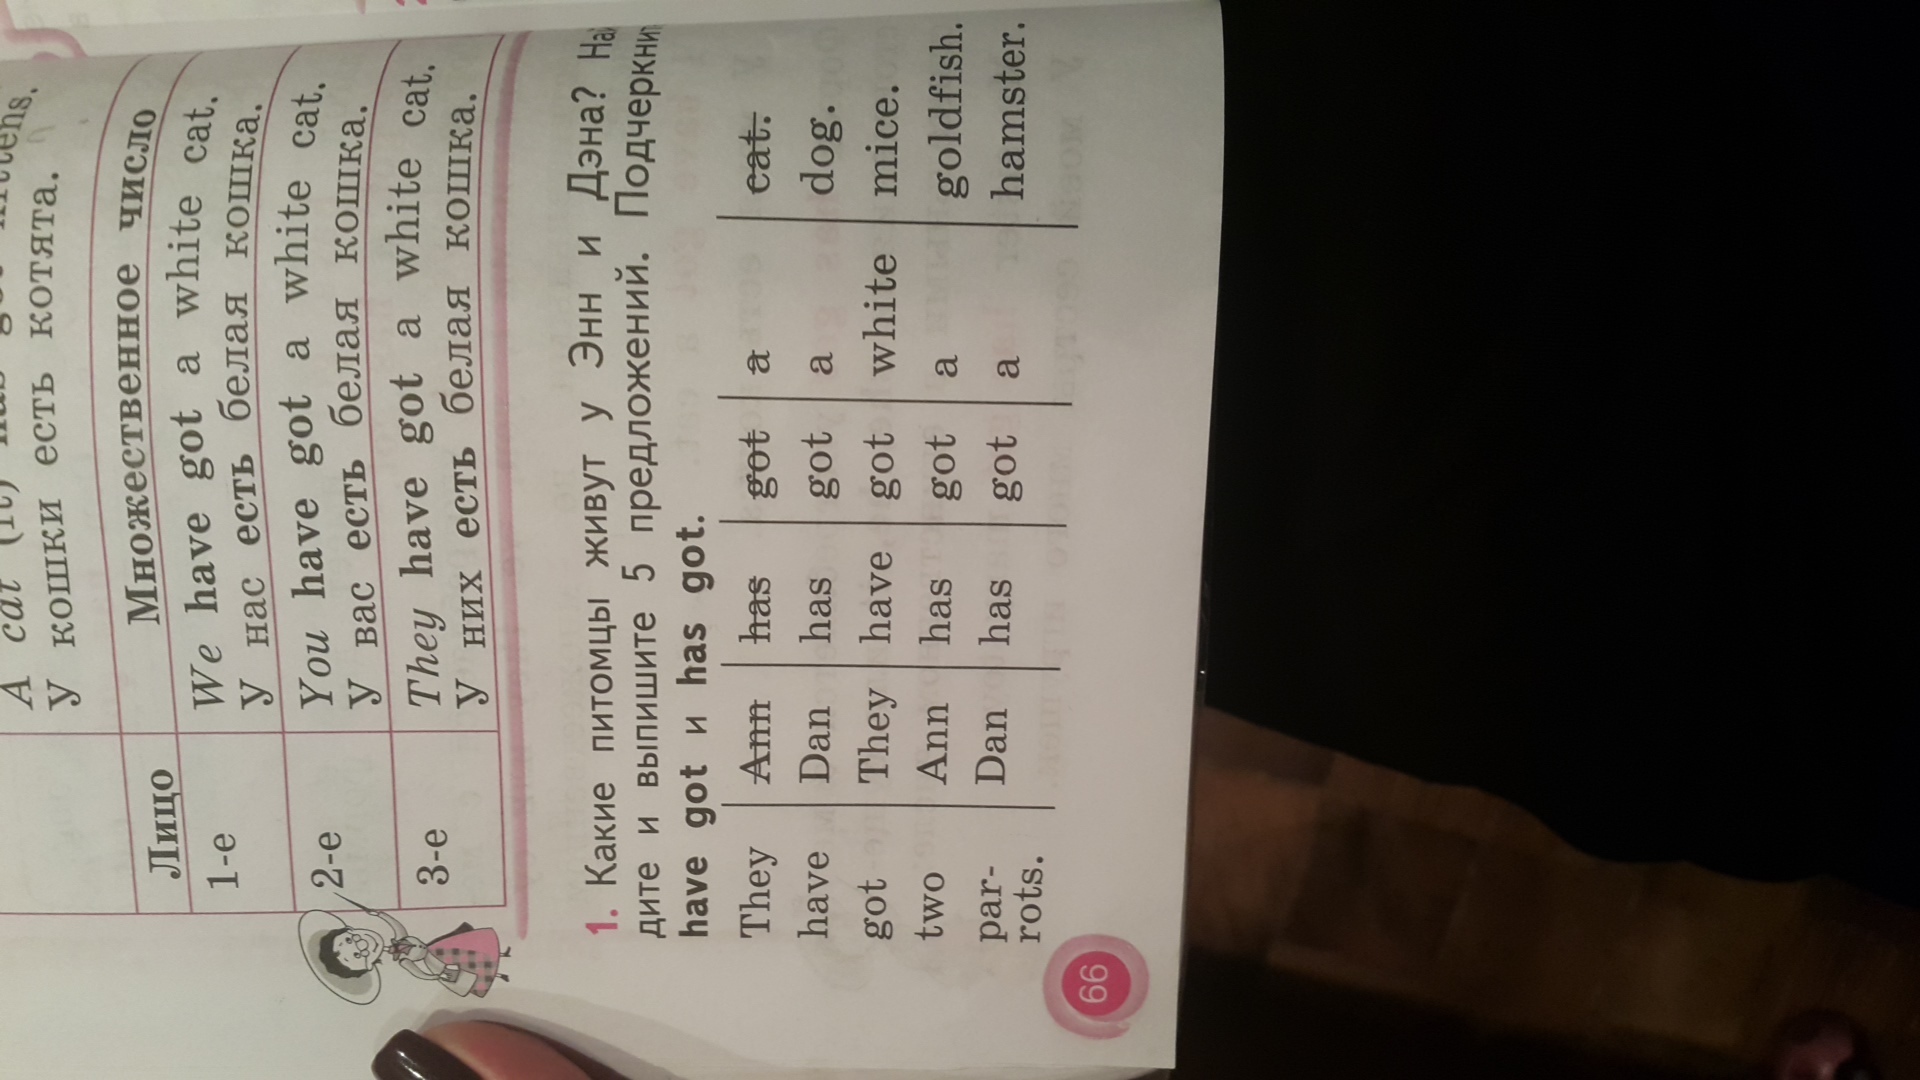 A cat (it)
у кошки есть котята.
Лицо Множественное число
1-е We have got a white cat.
у нас есть белая кошка.
2-е You have got a white cat.
у вас есть белая кошка.
3-е They have got a white cat.
у них есть белая кошка.
1. Какие питомцы живут у Энн и Дэна? На
дите и выпишите 5 предложений. Подчеркни
have got и has got.
They Ann has got a cat.
have Dan has got a dog.
got They have got white mice.
two Ann has got a goldfish.
par- Dan has got a hamster.
rots.
66